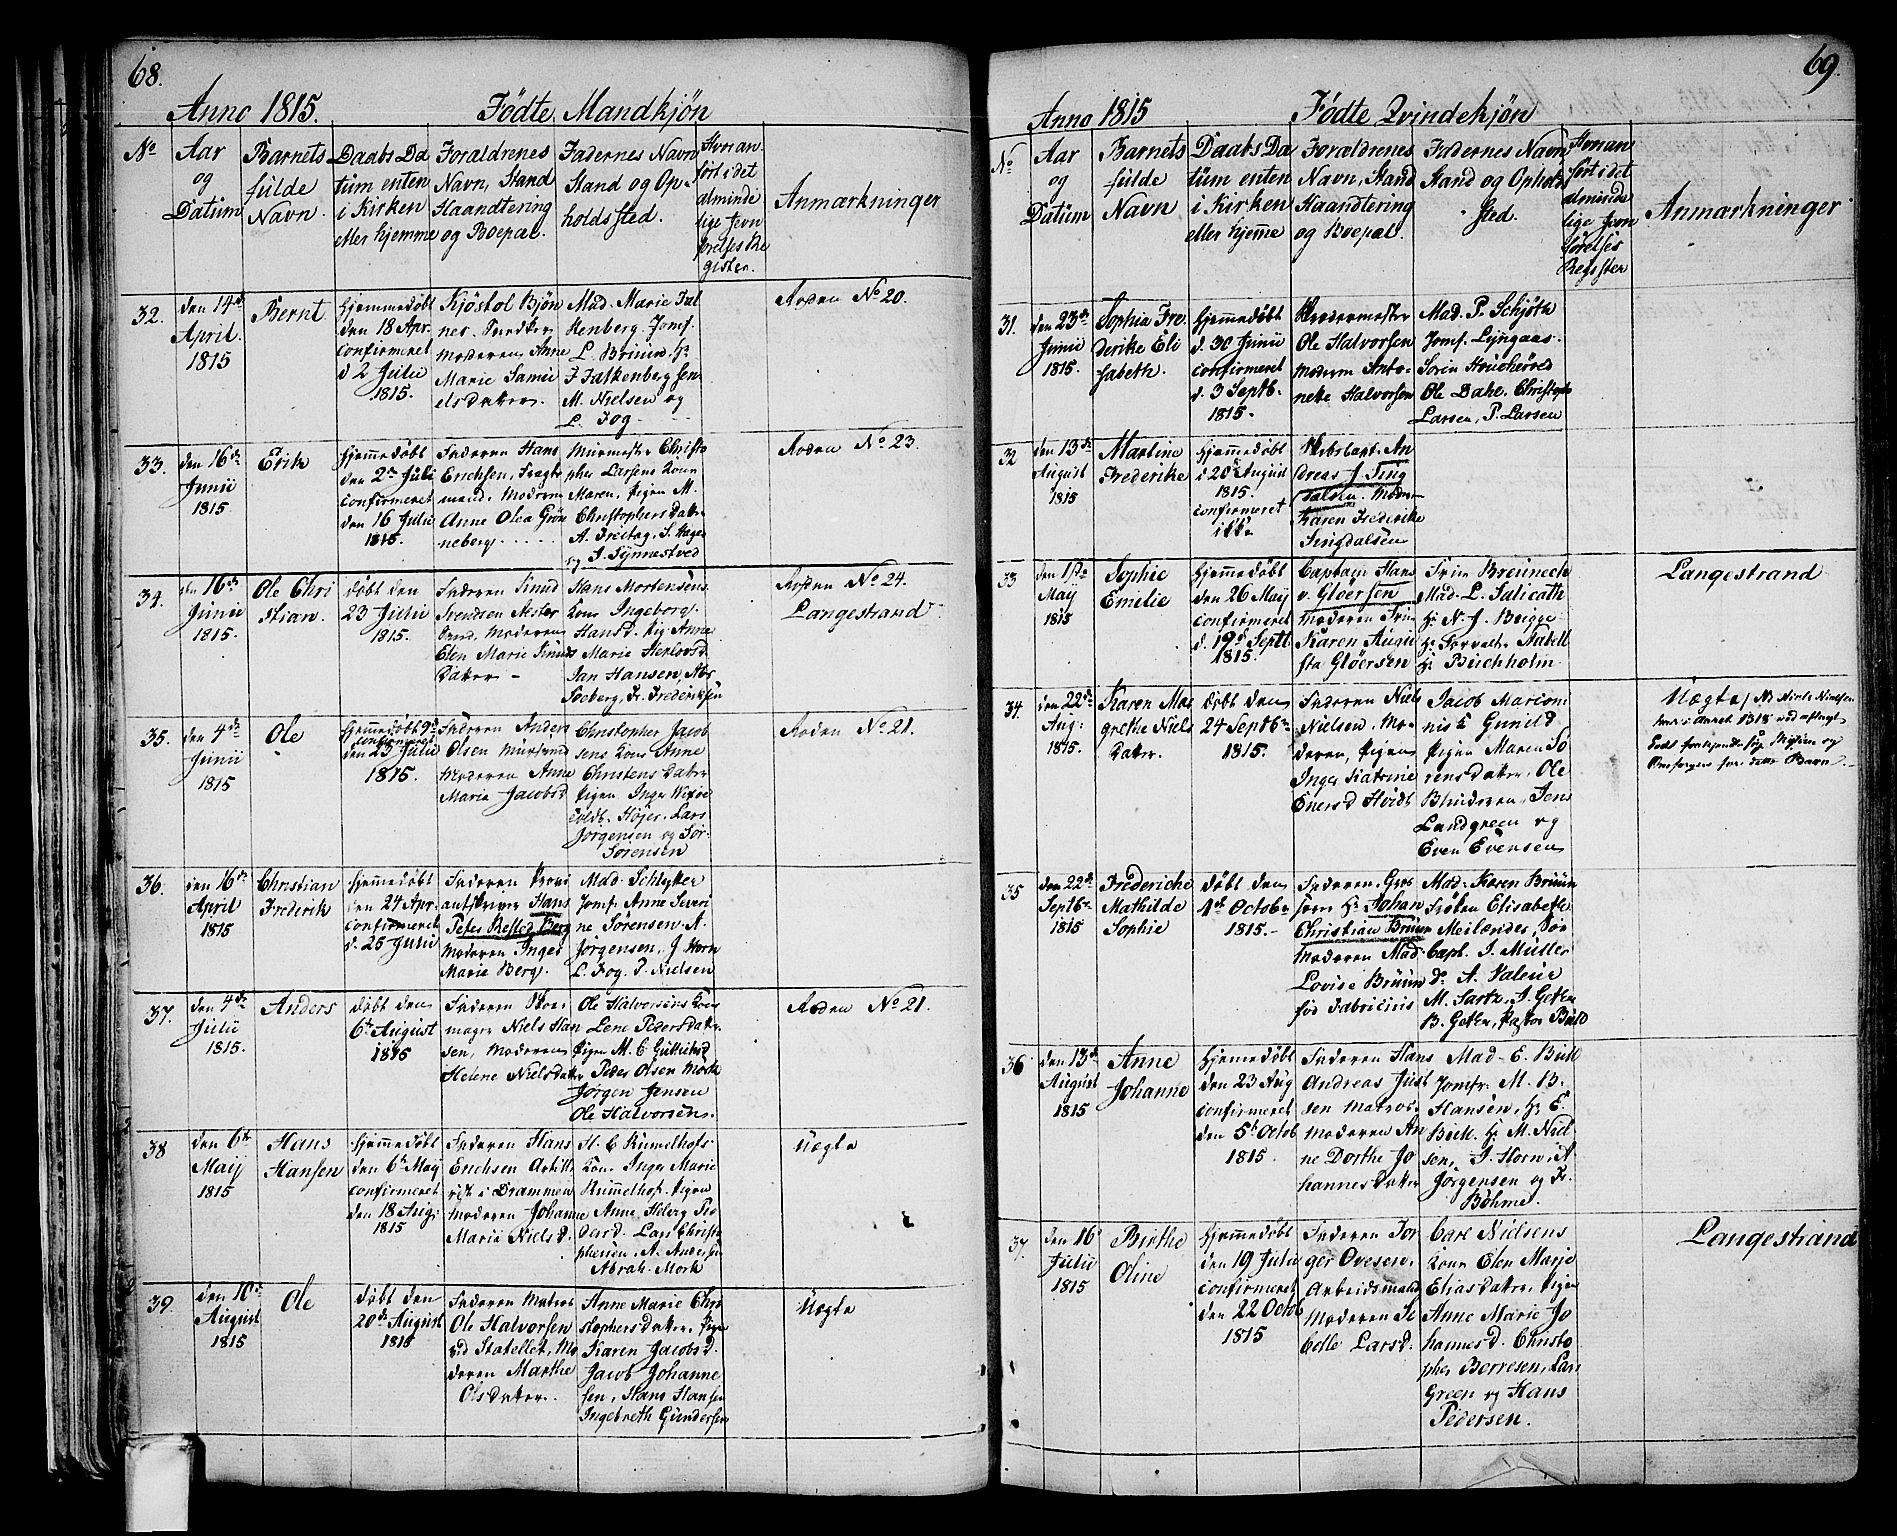 68.
Anno 1815. Födte Mandkjön
No
Aar
og
Datum
Barnets
fulde
Navn.
Daabs Da
tum enten
i Kirken
eller hjemme
Foraldrenes
Navn, Stand
Haandtering
og Boepæl.
Fadernes Navn
Stand og Op-
holdssted.
Hvor an
fört i det
alminde
lige Jevn
Anmærkninger
32.
den 14de
April.
1815
Bernt
Hjemmedöbt
den 18 Apr.
confirmeret
d 2 Julii
1815.
Kjöstol Bjön
ner.
Moderen Anne
Marie Samu
elsdatter.
Mad. Marie Fal
kenberg. Jomf.
L. Bruun. Hr
J. Falkenberg sen
M. Nielsen og
L. Fog
Roden No 20.
33.
den 16de
Junii
1815
Erik
Hjemmedöbt
den 2den Juli
confirmeret
den 16 Julii
1815.
Faderen Hans
Erichsen, Fragt
mand. Moderen
Anne Olea Grön
neberg
Muurmester Christo
pher Larsens Kone
Maren, Pigen M.
Christophersdatter
A. Freitag, S. Hage
og J. Synnestved
Roden No 23.
34.
den 16de
Junii
1815.
Ole Chri
stian.
döbt den
23 Julii
1815.
Faderen Knud
Svendsen
Moderen
Elen Marie Knuds
datter
Hans Mortensens
Kone Ingeborg
Hansd. Pig. Anne
Marie Herlovsd.
Jan Hansen, Abr
Soeberg, Fr. Frederiksen
Roden No 24.
Langestrand
35.
den 4de
Junii
1815
Ole
Hjemmedöbt 9de
confirmeret
den 23 Julii
1815.
Faderen Anders
Olsen Muurmand
Moderen Anne
Maria Jacobsd
Christopher Jacob
sens Kone Anne
Christensdatter
Pigen Inger
Höjer. Lars
Jörgensen og Sör.
Sörensen
Roden No 21.
36.
den 16de
April
1815
Christian
Frederik
Hjemmedöbt
den 24 Apr.
confirmeret
d. 25 Julii
Faderen Provi
antskriver Hans
Peter Berg
Moderen Inger
Marie Berg.
Mad. Schlytter
Jomf. Anne Severi
ne Sörensen. A.
Jörgensen, J Horn
L. Fog. P. Nielsen
37.
den 4de
Julii
1815.
Anders
döbt den
6te August
1815
Faderen Skoe
mager Niels Han
sen, Moderen
Helene Nielsdatter
Ole Halvorsens Kone
Lene Pedersdatter.
Pigen M. C
Peder Olsen Mörk
Jörgen Jensen
Ole Halvorsen.
Roden No 21.
38
den 6te
Maij
1815
Hans
Hansen
Hjemmedöbt
den 6te Maij
confirmeret
den 18 Aug:
1815
Faderen Hans
Erichsen Artille
rist i Drammen
Moderen Johanne
Maria Nielsd.
H. C Rummelhofs
Kone Inger Marie
Rummelhof. Pigen
Anne Helvig Pe
dersd. Lars Christo
phersen, A. Andersen
Abrah. Mørk
Uægte
39.
den 10de
August
1815
Ole
döbt den
20de August
1815
Faderen Matros
Ole Halvorsen
ved Statellet, Mo
deren Marthe
Olsdatter.
Anne Marie Chri
stophersdatter. Pigen
Karen Jacobsd.
Jacob Johanne
sen, Hans Hansen
Ingebreth Gundersen
Uægte
69.
Anno 1815 Födte Qvindekjön
No
Aar
og
Datum
Barnets
fulde
Navn
Daabs Da
tum enten
i Kirken
eller hjemme
Forældrenes
Navn, Stand
Haandtering
og Boepæl.
Fadernes Navn
Stand og Opholds
sted.
Hvor an
fört i det
alminde
lige Jevn
förelses
Register
Anmærkninger
31.
den 23de
Junii
1815.
Sophia Fre
derike Eli
sabeth.
Hjemmedöbt
d. 30 Junii
confirmeret
d. 3 Septb.
1815.
Ole Halvorsen
Moderen Anto-
nette Halvorsen
Mad. P. Schjöth
Jomf. Lyngaas
Sören
Ole Dahl. Christoph
Larsen, P. Larsen
32
den 13de
August
1815
Martine
Frederike
Hjemmedöbt
d 20de August
1815.
confirmeret
Andreas J Ting
dalsen. Moder
Karen Frederike
Tingdalsen
33
den 1ste
Maij
1815
Sophie
Emelie
Hjemmedöbt
den 26 Maij
confirmeret
d. 19de Septb
1815.
Captain Hans
v. Gloersen
Moderen Fru
Karen Augu
sta Glöersen
Frue Breuneck
Mad. L. Salicath
Hr N. J. Brigge
Hr Forvalter Stabell
Hr Buchholm
Langestrand
34.
den 22de
Aug:
1815.
Karen Mar
grethe Niels
datter.
döbt den
24 Septbr
1815.
Faderen Niels
Nielsen, Mo-
deren, Pigen
Inger Katrine
Enersd Hvidt
Jacob
Gunild
Pigen Maren Sö
rensdatter, Ole
Jens
Landgreen og
Even Evensen
Uægte
35
den 22de
Septbr
1815
Frederiche
Mathilde
Sophie
döbt den
1ste Octobr
1815.
Faderen, Gros
serer Hr Johan
Christian Bruun
Moderen Mad.
Lovise Bruun
fød Fabricius
Mad. Karen Bruun
Fröken Elisabeth
Meilænder,
Capt. J. Müller
Dr. A. Valeur
M. Sartz, J. Getter
B. Getter, Pastor Buld
36
den 13de
August
1815
Anne
Johanne
Hjemmedöbt
den 23 Aug
confirmeret
den 5te Octob
1815.
Faderen Hans
Andreas Just
sen Matros.
Moderen An
ne Dorthe Jo
hannesdatter
Mad. E. Bull
Jomfr. M. B.
Hansen, Hr E.
Bull. Hr. M. Niel
sen, J. Horn, A
Jörgensen og Fr.
Böhme.
37.
den 16
Julii
1815
Birthe
Oline
Hjemmedöbt
den 19 Julii
confirmeret
den 22 Octob
1815
Faderen Tor
ger Ovesen.
Arbeidsmand
Moderen Si
belle Larsd.
Carl Nielsens
Kone Elen Marie
Eliasdatter, Pigen
Anne Marie Jo
hannesd. Christo
pher Berresen, Lars
Green og Hans
Pedersen.
Langestrand